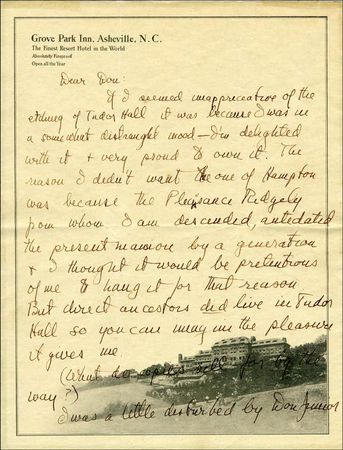 Grove Park Inn. Asheville, N. C.
The Finest Resort Hotel in the World
Absolutely Fireproof
Open all the Year
Dear Don:
If I seemed inappreciative of the
etching of Tudor Hall it was because I was in
a somewhat distraught mood — I'm delighted
with it & very proud to own it. The
reason I didn't want the one of Hampton
was because the Pleasance Ridgely
from whom I am descended, antedated
the present mansion by a generation
& I thought it would be pretentious
of me to hang it for that reason
But direct ancestors did live in Tudor
Hall so you can imagine the pleasure
it gives me.
(What do copies sell for by the
way?)
I was a little disturbed by Don Junior